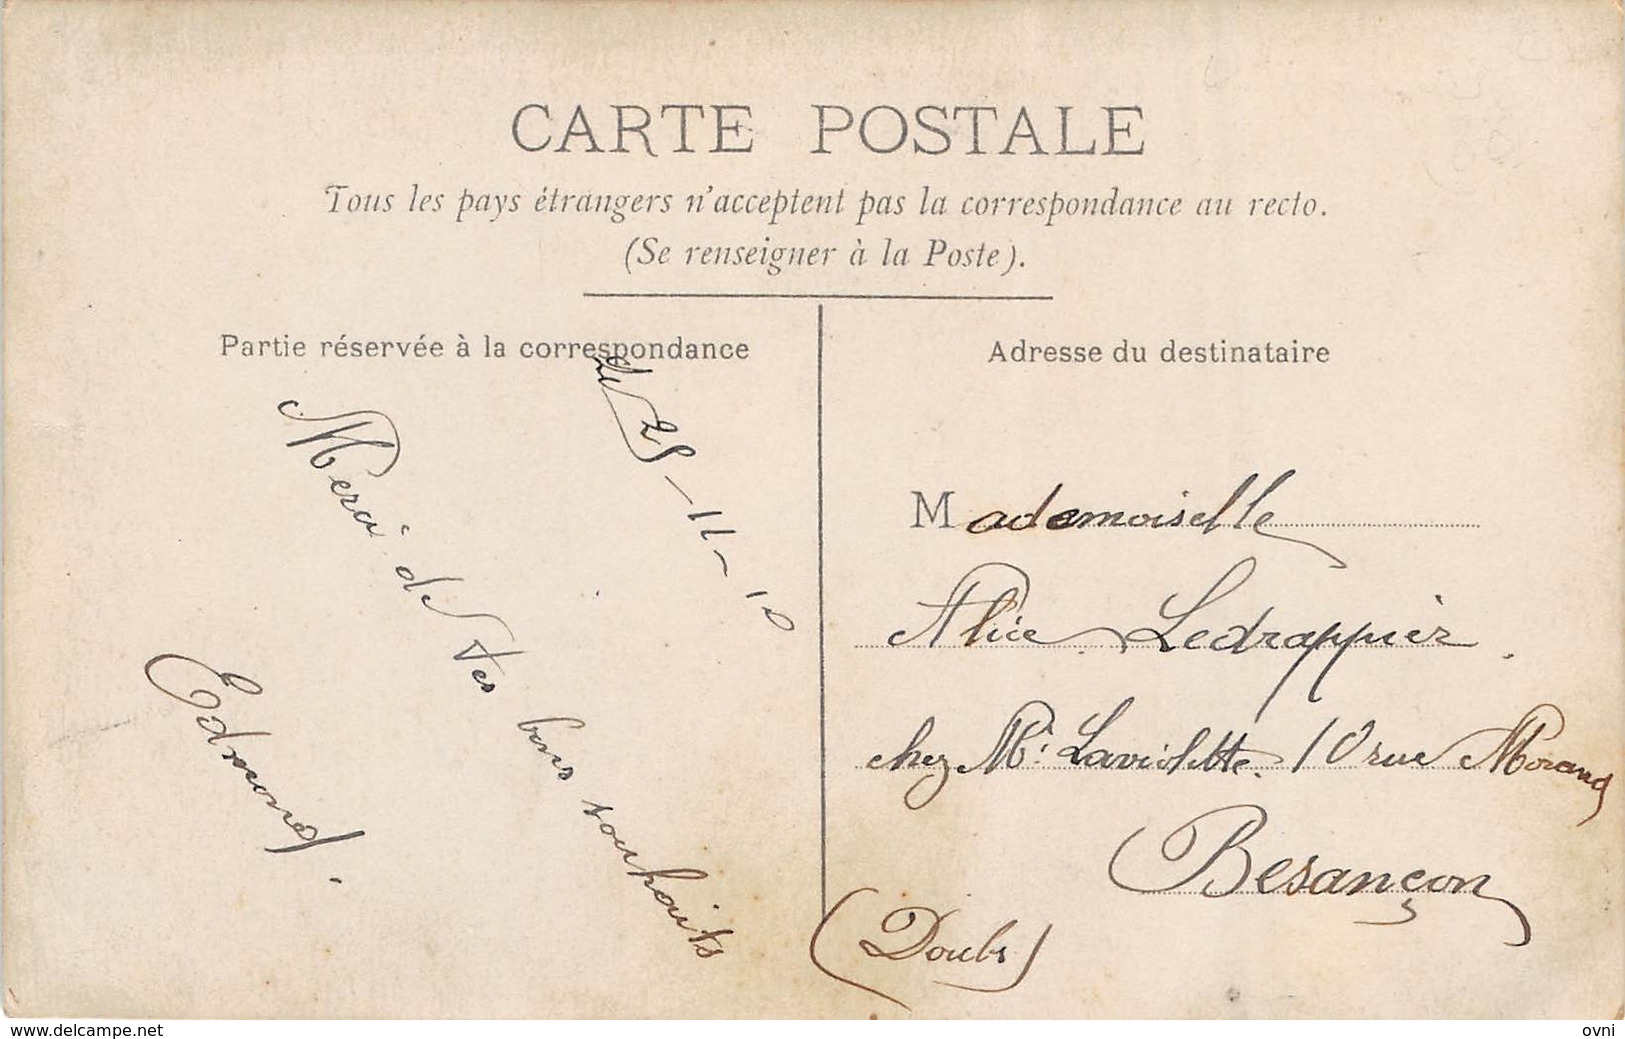 CARTE POSTALE
Tous les pays étrangers n'acceptent pas la correspondance au recto.
(Se renseigner à la Poste).
Partie réservée à la correspondance
Le 25-11-10
Merci de tes bons souhaits
Edmond.
Adresse du destinataire
Mademoiselle
Alice Ledrappier.
chez Mr. Laviolette. 10 rue Morand
Besançon
(Doubs)
www.delcampe.net
ovni